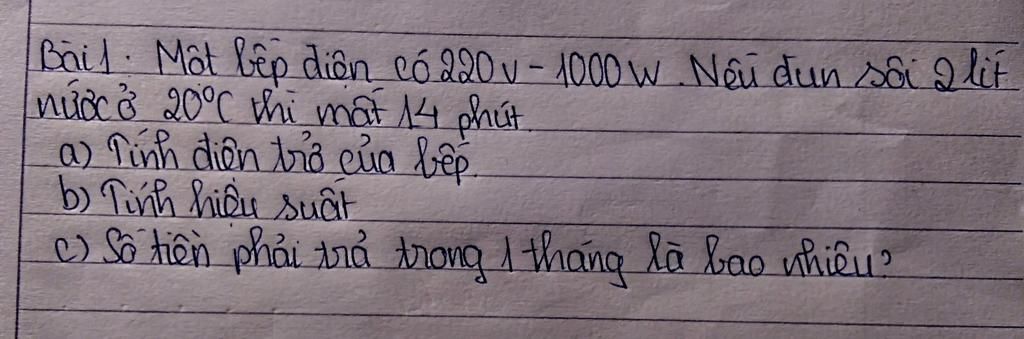 Bài 1. Một bếp điện có 220V - 1000W. Nếu đun sôi 2 lít
nước ở 20°C thì mất 14 phút.
a) Tính điện trở của bếp.
b) Tính hiệu suất
c) Số tiền phải trả trong 1 tháng là bao nhiêu?